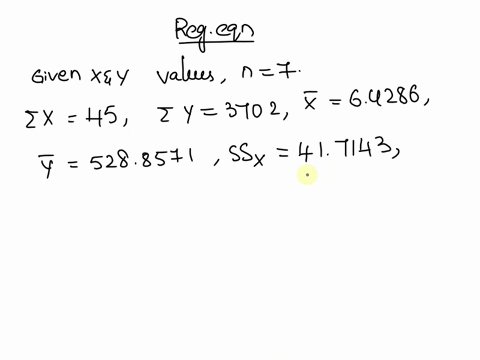 Reg.eqn
Given X & Y values, n = 7.
ΣX = 45, ΣY = 3702, X̄ = 6.4286,
Ȳ = 528.8571, SSₓ = 41.7143,